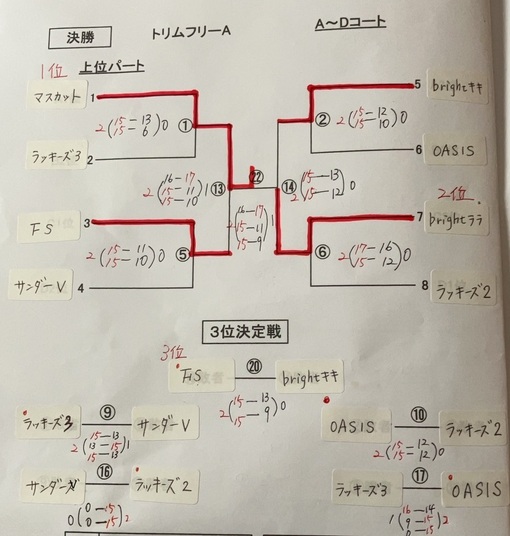 決勝 トリムフリーA A～Dコート
1位 上位パート
マスカット 1 5 brightキキ
2(15-13 15-6)0 ① ② 2(15-12 15-10)0
ラッキーズ3 2 6 OASIS
2(16-17 15-11 15-10)1 ⑬ ㉒ ⑭ 2(15-13 15-12)0
2位
FS 3 7 brightララ
2(16-17 15-11 15-9)1
2(15-11 15-10)0 ⑤ ⑥ 2(17-16 15-12)0
サンダーV 4 8 ラッキーズ2
3位決定戦
3位
FS ⑳ brightキキ
2(15-13 15-9)0
ラッキーズ3 ⑨ サンダーV
2(15-13 13-15 15-13)1
OASIS ⑩ ラッキーズ2
2(15-12 15-12)0
サンダーV ⑯ ラッキーズ2
0(0-15 0-15)2
ラッキーズ3 ⑰ OASIS
1(16-14 9-15 0-15)2